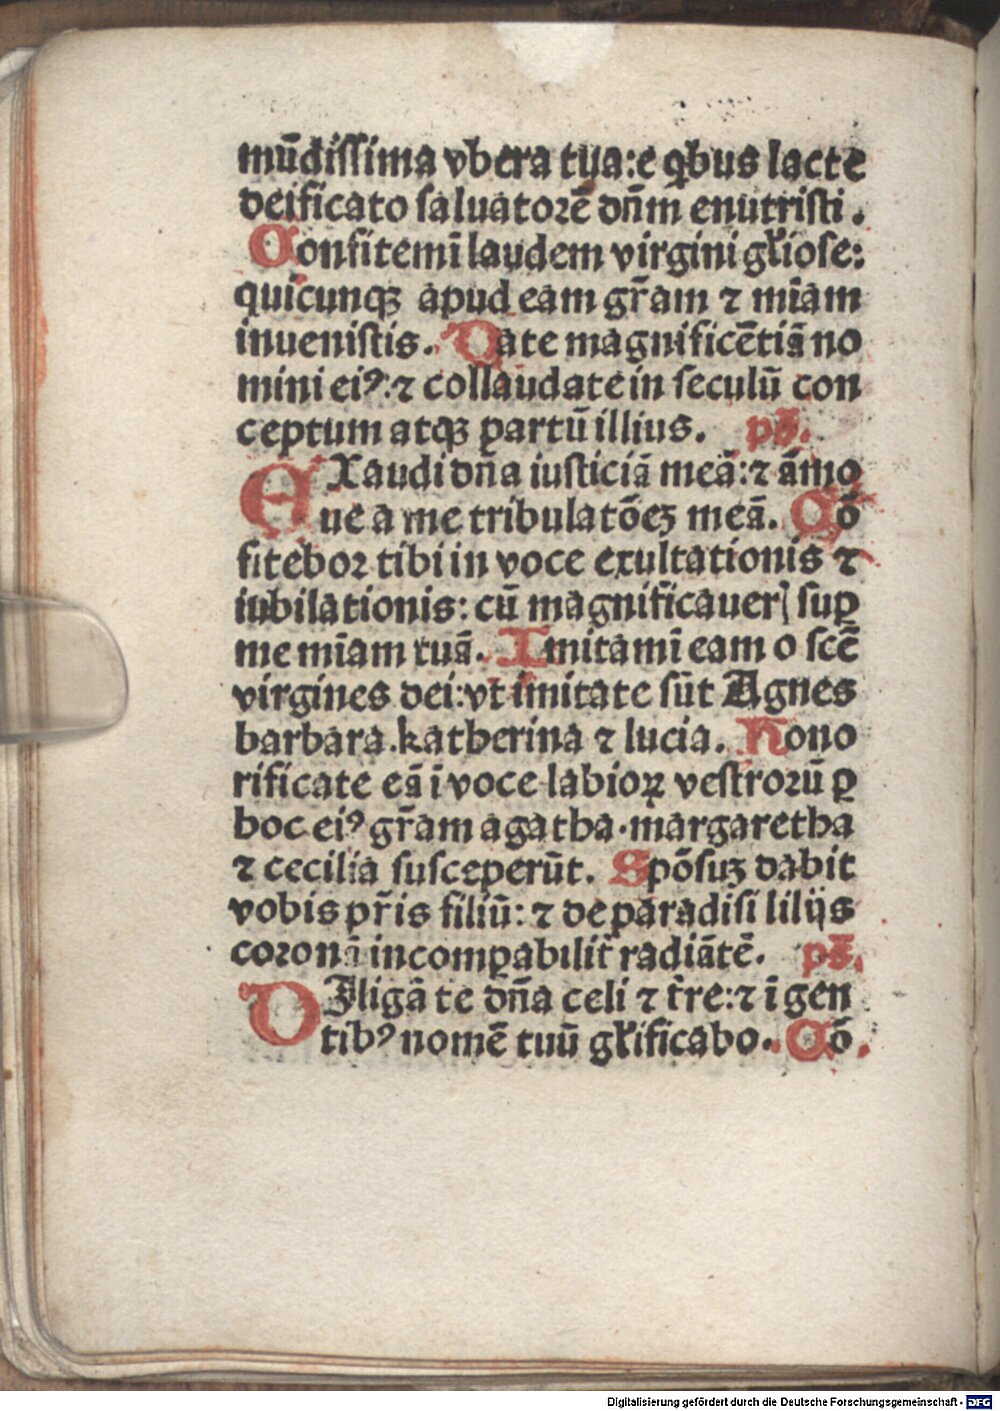 mūdissima vbera tua:e qbus lacte
deificato saluatorē dn̄m enutristi.
Confitemī laudem virgini gl'iose:
quicunqꝫ apud eam gr̄am ⁊ mīam
inuenistis. Date magnificētiā no
mini eiꝰ:⁊ collaudate in seculū con
ceptum atqꝫ ꝑartū illius. ps̄.
EXaudi dn̄a iusticiā meā:⁊ āmo
ue a me tribulatōeꝫ meā. Cō
fitebor tibi in voce exultationis ⁊
iubilationis: cū magnificauer̄ suꝑ
me mīam tuā. Imitamī eam o scē
virgines dei:vt imitate sūt Agnes
barbara.katherina ⁊ lucia. Hono
rificate eā ī voce labioꝝ vestrorū ꝑ
hoc eiꝰ gr̄am agatha.margaretha
⁊ cecilia susceperūt. Spōsuꝫ dabit
vobis pr̄is filiū: ⁊ de paradisi lilijs
coronā incomꝑabilit̄ radiātē. ps̄.
DIligā te dn̄a celi ⁊ tr̄e:⁊ ī gen
tibꝰ nomē tuū gl'ificabo. Cō
Digitalisierung gefördert durch die Deutsche Forschungsgemeinschaft - DFG